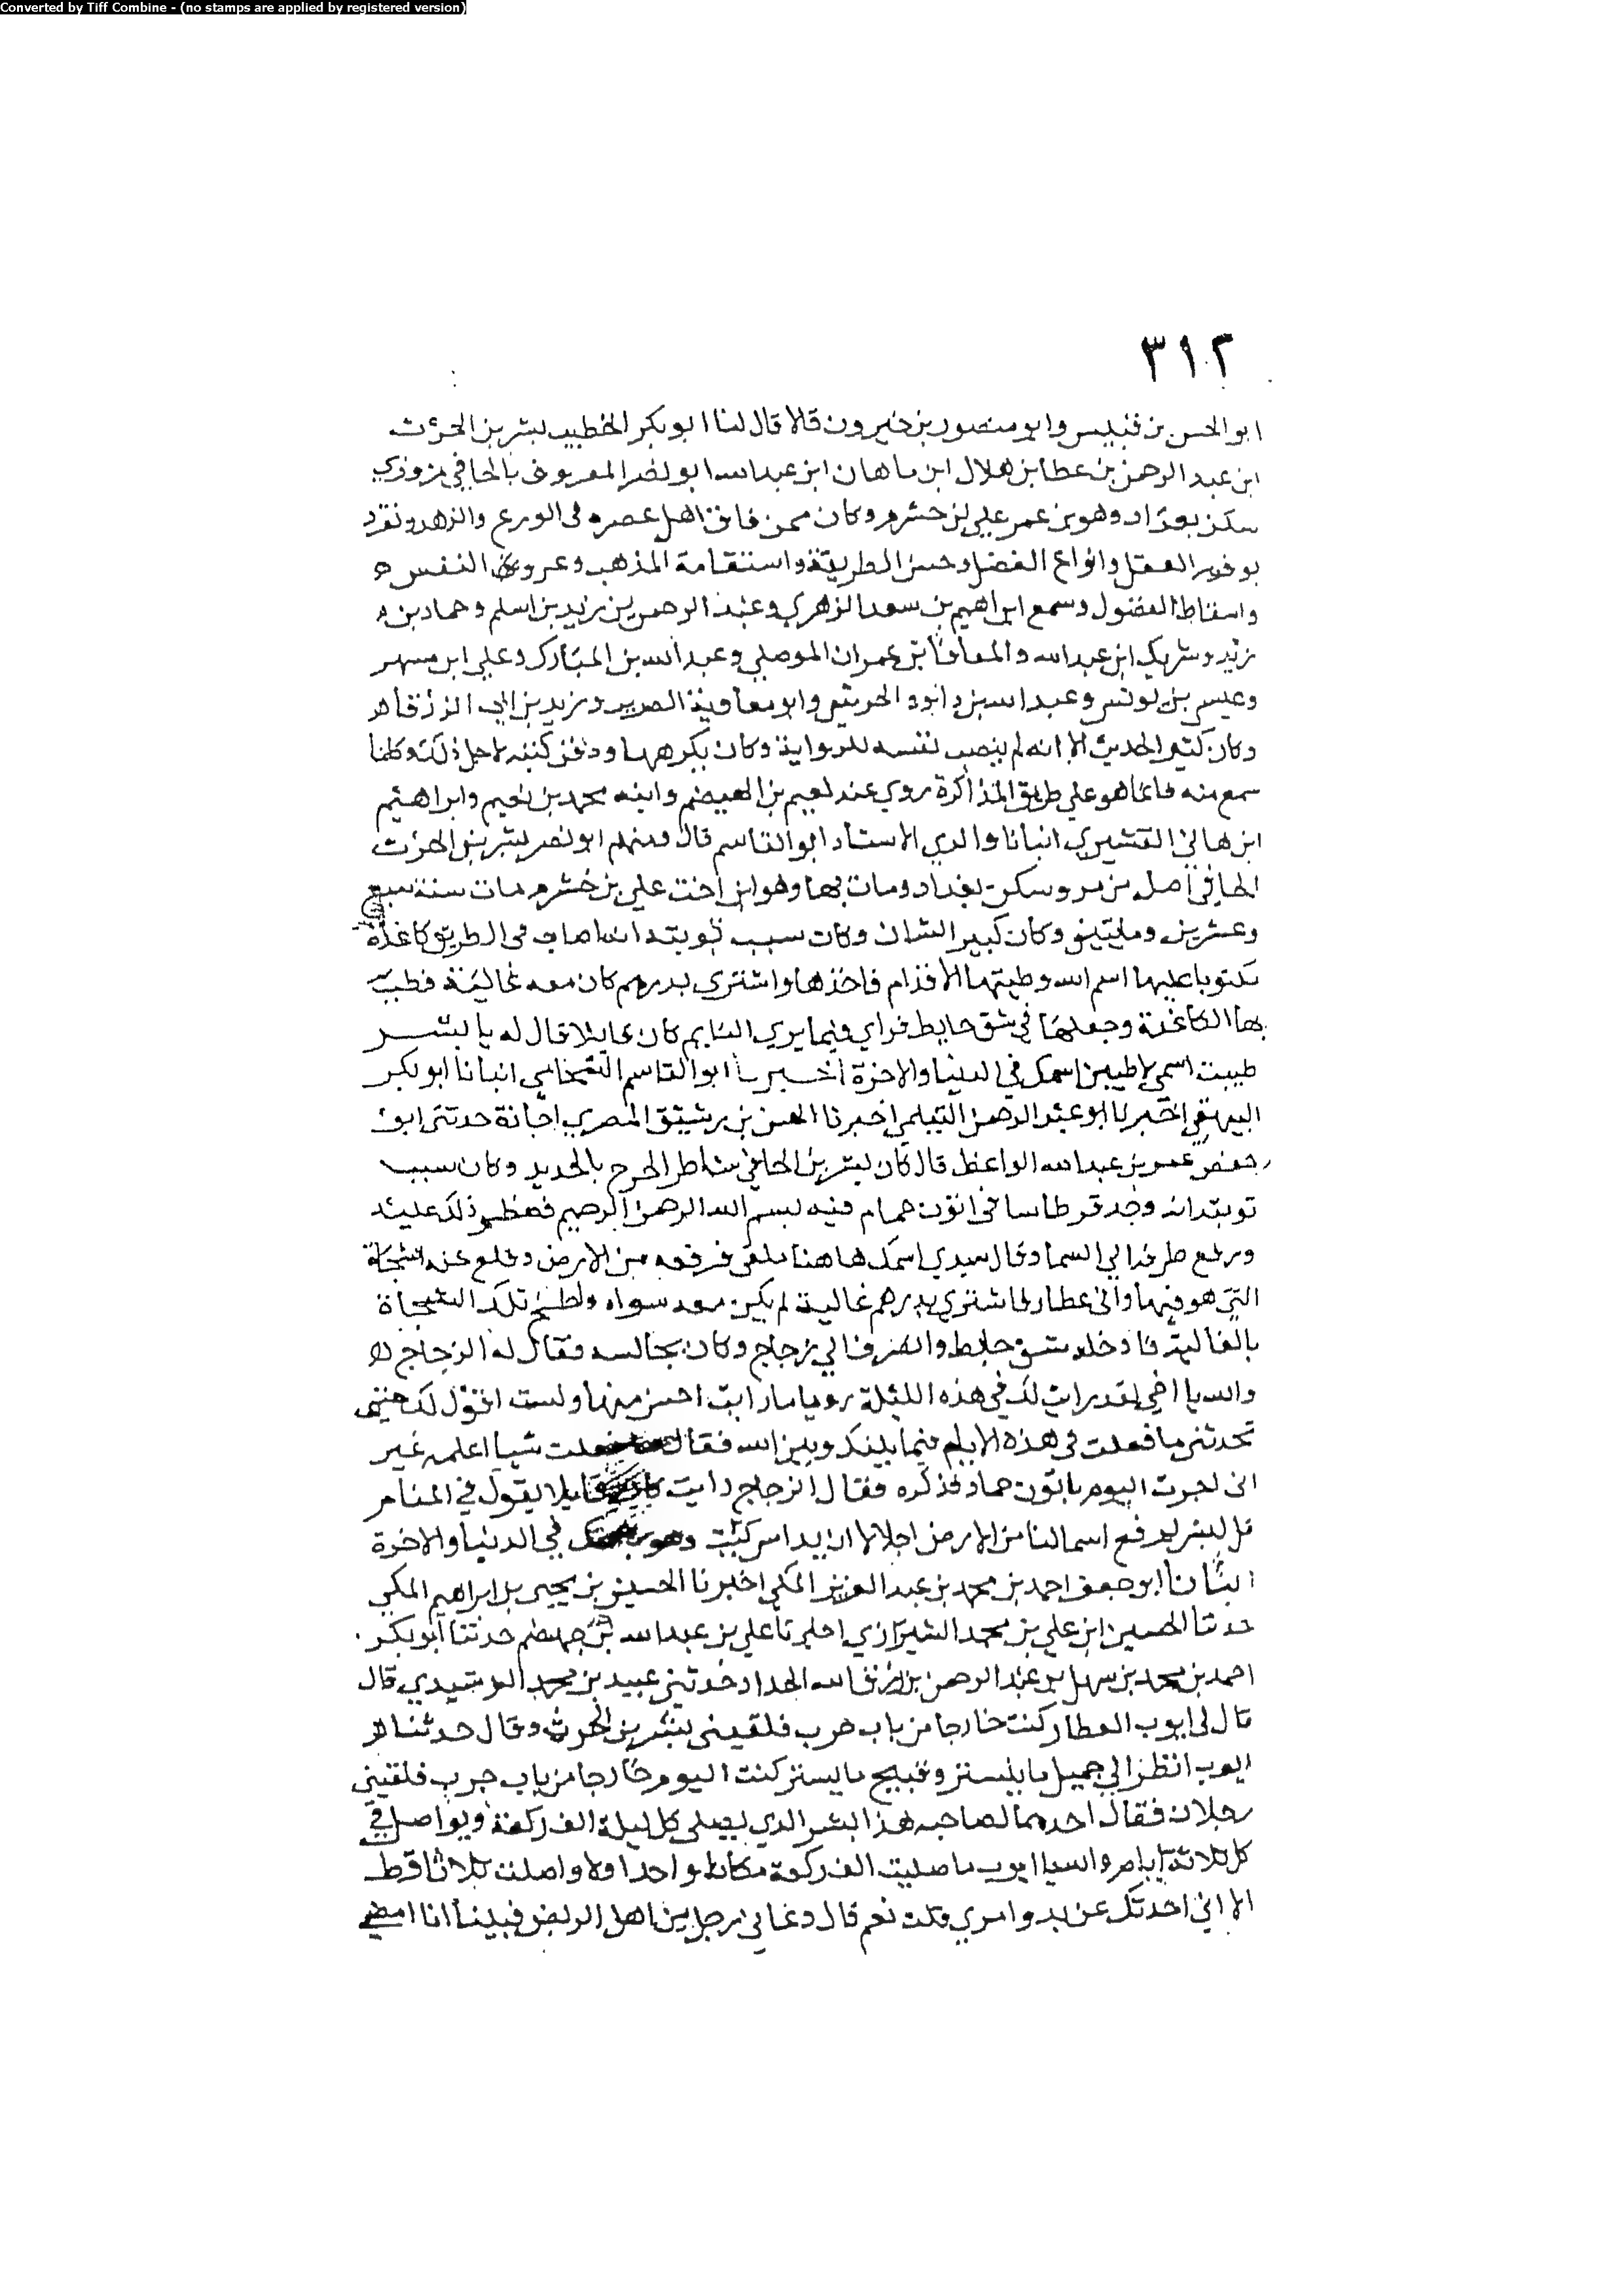 Converted by Tiff Combine - (no stamps are applied by registered version)
٣١٢
ابو الحسن بن قبيس وابو منصور بن خيرون قالا قال لنا ابو بكر الخطيب بشر بن الحرث
ابن عبد الرحمن بن عطا بن هلال ابن ماهان ابن عبد الله ابو نصر المعروف بالحافي مروزي
سكن بغداد وهو بن عمر علي بن حشرم وكان ممن فاق اهل عصره في الورع والزهد وتفرد
بوفور العقل وانواع الفضل وحسن الطريقة واستقامة المذهب وعزوف النفس
واسقاط الفضول وسمع ابراهيم بن سعد الزهري وعبد الرحمن بن زيد بن اسلم وحماد بن
زيد وشريك ابن عبد الله والمعافا بن عمران الموصلي وعبد الله بن المبارك وعلي ابن مسهر
وعيسى بن يونس وعبد الله بن داود الحريثي وابو معاوية الضرير وزيد بن ابي الزرقاء
وكان كثير الحديث الا انه لم ينصب نفسه للرواية وكان يكرهها ودفن كتبه لاجل ذلك وكلما
سمع منه فانما هو علي طريق المذاكرة روي عنه نعيم بن الهيضم وابنه محمد بن نعيم وابراهيم
ابن هاني القشيري انبانا والدي الاستاد ابو القاسم قال ومنهم ابو نصر بشر بن الحرث
الحافي اصله من مرو وسكن بغداد ومات بها وهو ابن اخت علي بن خشرم مات سنة سبع
وعشرين ومايتين وكان كبير الشان وكان سبب توبته انه اصاب في الطريق كاغدة
مكتوبا عليها اسم الله وطيتها الاقدام فاخذها واشترى بدرهم كان معه غالية فطيب
بها الكاغدة وجعلها في شق حايط فراي فيما يري النايم كان قايلا قال له يا بشر
طيبت اسمي لاطيبن اسمك في الدنيا والاخرة اخبرنا ابو القاسم الشحامي انبانا ابو بكر
البيهقي اخبرنا ابو عبد الرحمن السلمي اخبرنا الحسن بن رشيق المصري اجازة حدثني ابو
جعفر عمر بن عبد الله الواعظ قال كان بشر بن الحافي شاطر الجرح بالحديد وكان سبب
توبته انه وجد قرطاسا في اتون حمام فيه بسم الله الرحمن الرحيم فعظم ذلك عليه
ورفع طرفه الي السما وقال سيدي اسمك هاهنا ملقى فرفعه من الارض وقلع عنه السحاة
التي هو فيها واتى عطار فاشتري بدرهم غالية لم يكن معه سواه ولطخ تلك السحاة
بالغالية فادخله شق حايط وانصرف الي زجاج وكان يجالسه فقال له الزجاج
والله يا اخي لقد رايت لك في هذه الليلة رويا ما رايت احسن منها ولست اقول لك حتى
تحدثني ما فعلت في هذه الايام فيما بينك وبين الله فقال فعلت شيا اعلمه غير
اني اجرت اليوم باتون حمام فذكره فقال الزجاج رايت قايلا يقول في المنام
قل لبشر يرفع اسما لنا من الارض اجلالا ان يداس في الدنيا والاخرة
انبانا ابو جعفر احمد بن محمد بن عبد العزيز المكي اخبرنا الحسين بن يحيى بن ابراهيم المكي
حدثنا الحسين ابن علي بن محمد الشيرازي اخبرنا علي بن عبد الله بن جهضم حدثنا ابو بكر
احمد بن محمد بن سهل بن عبد الرحمن بن رزق الله الحداد حدثني عبيد بن محمد قال
قال لي ايوب العطار كنت خارجا من باب حرب فلقيني بشر بن الحرث وقال حدثنا
ايوب انظر الي جميل ما ينشر وقبيح ما يستر كنت اليوم خارجا من باب حرب فلقيني
رجلان فقال احدهما لصاحبه هذا بشر الذي يصلي كل ليلة الف ركعة ويواصل في
كل ثلاثة ايام والله يا ايوب ما صليت الف ركعة مكانا واحدا ولا واصلت ثلاثا قط
الا اني احدثك عن بدو امري قلت نعم قال دعاني رجل من اهل الربض فبينا انا امضي